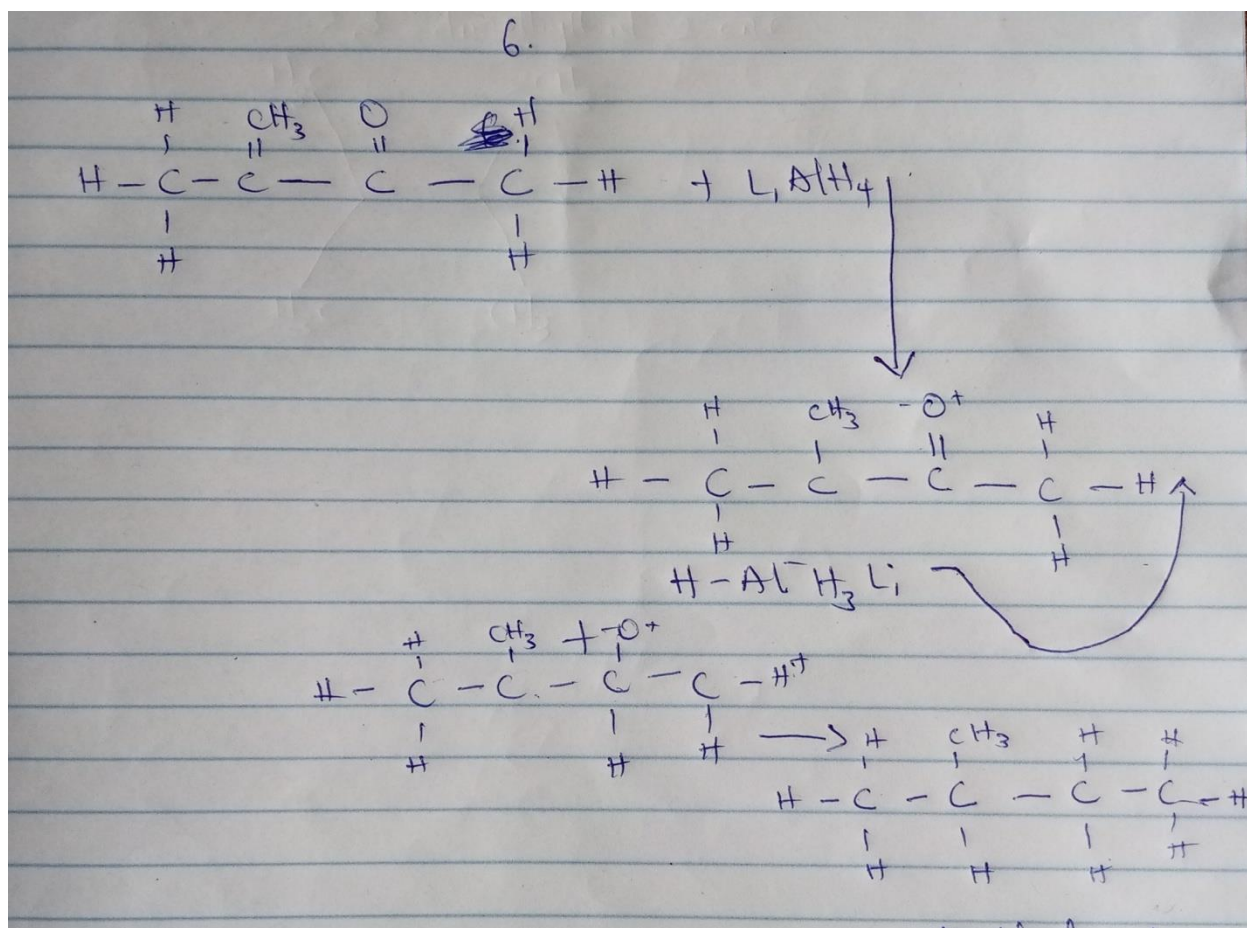 6.
H CH₃ O H
| || || |
H – C – C — C — C – H + LiAlH₄
| |
H H
H CH₃ -O⁺ H
| | || |
H – C – C – C – C – H
| |
H H
H – Al⁻H₃Li
H CH₃ + -O⁺
| | |
H – C – C – C – C – H⁺
| | |
H H H
→
H CH₃ H H
| | | |
H – C – C – C – C – H
| | | |
H H H H